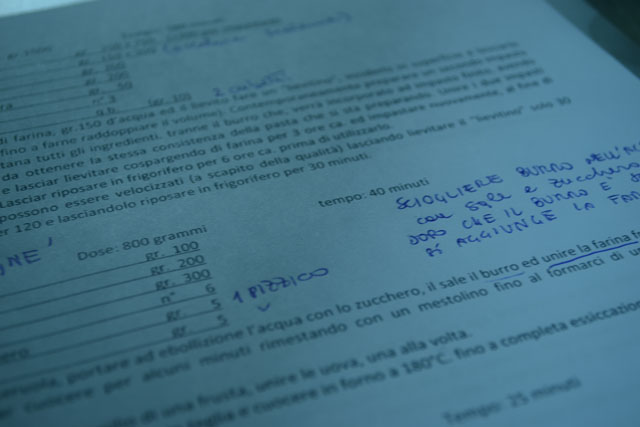 gr. 50
n° 3
q.b. (gr. 10) 2 cubetti
di farina, gr.150 d'acqua ed il lievito
fino a farne raddoppiare il volume). Contemporaneamente preparare un secondo impasto
tana tutti gli ingredienti, tranne il burro che, verrà incorporato ad impasto finito, avendo
da ottenere la stessa consistenza della pasta che si sta preparando. Unire i due impasti
e lasciar lievitare cospargendo di farina per 3 ore ca. ed impastare nuovamente, al fine di
Lasciar riposare in frigorifero per 6 ore ca. prima di utilizzarlo.
possono essere velocizzati (a scapito della qualità) lasciando lievitare il "lievitino" solo 30
er 120 e lasciandolo riposare in frigorifero per 30 minuti.
tempo: 40 minuti
SCIOGLIERE BURRO NELL'
con sale e zucchero
DOPO CHE IL BURRO E'
SI AGGIUNGE LA FAR
GNE'
Dose: 800 grammi
gr. 100
gr. 200
gr. 300
n° 6
gr. 5 1 PIZZICO
ero gr. 5
eruola, portare ad ebollizione l'acqua con lo zucchero, il sale il burro ed unire la farina
r cuocere per alcuni minuti rimestando con un mestolino fino al formarci di
di una frusta, unire le uova, una alla volta.
teglia e cuocere in forno a 180°C. fino a completa essiccazion
Tempo: 25 minuti